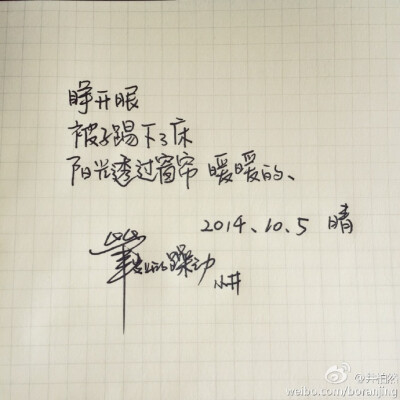 睁开眼
被子踢下了床
阳光透过窗帘 暖暖的、
2014、10.5 晴
躁动
小井
@井柏然
weibo.com/boranjing